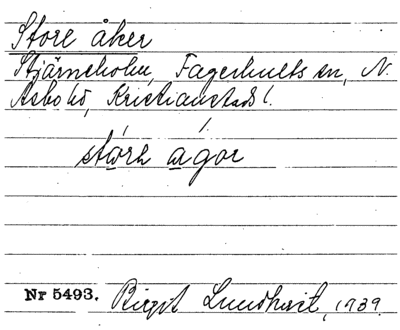 Store åker
Stjärneholm, Fagerhults sn, N.
Åsbo hd, Kristianstads l.
störe agor
Nr 5493. Birgit Lundqvist, 1939.